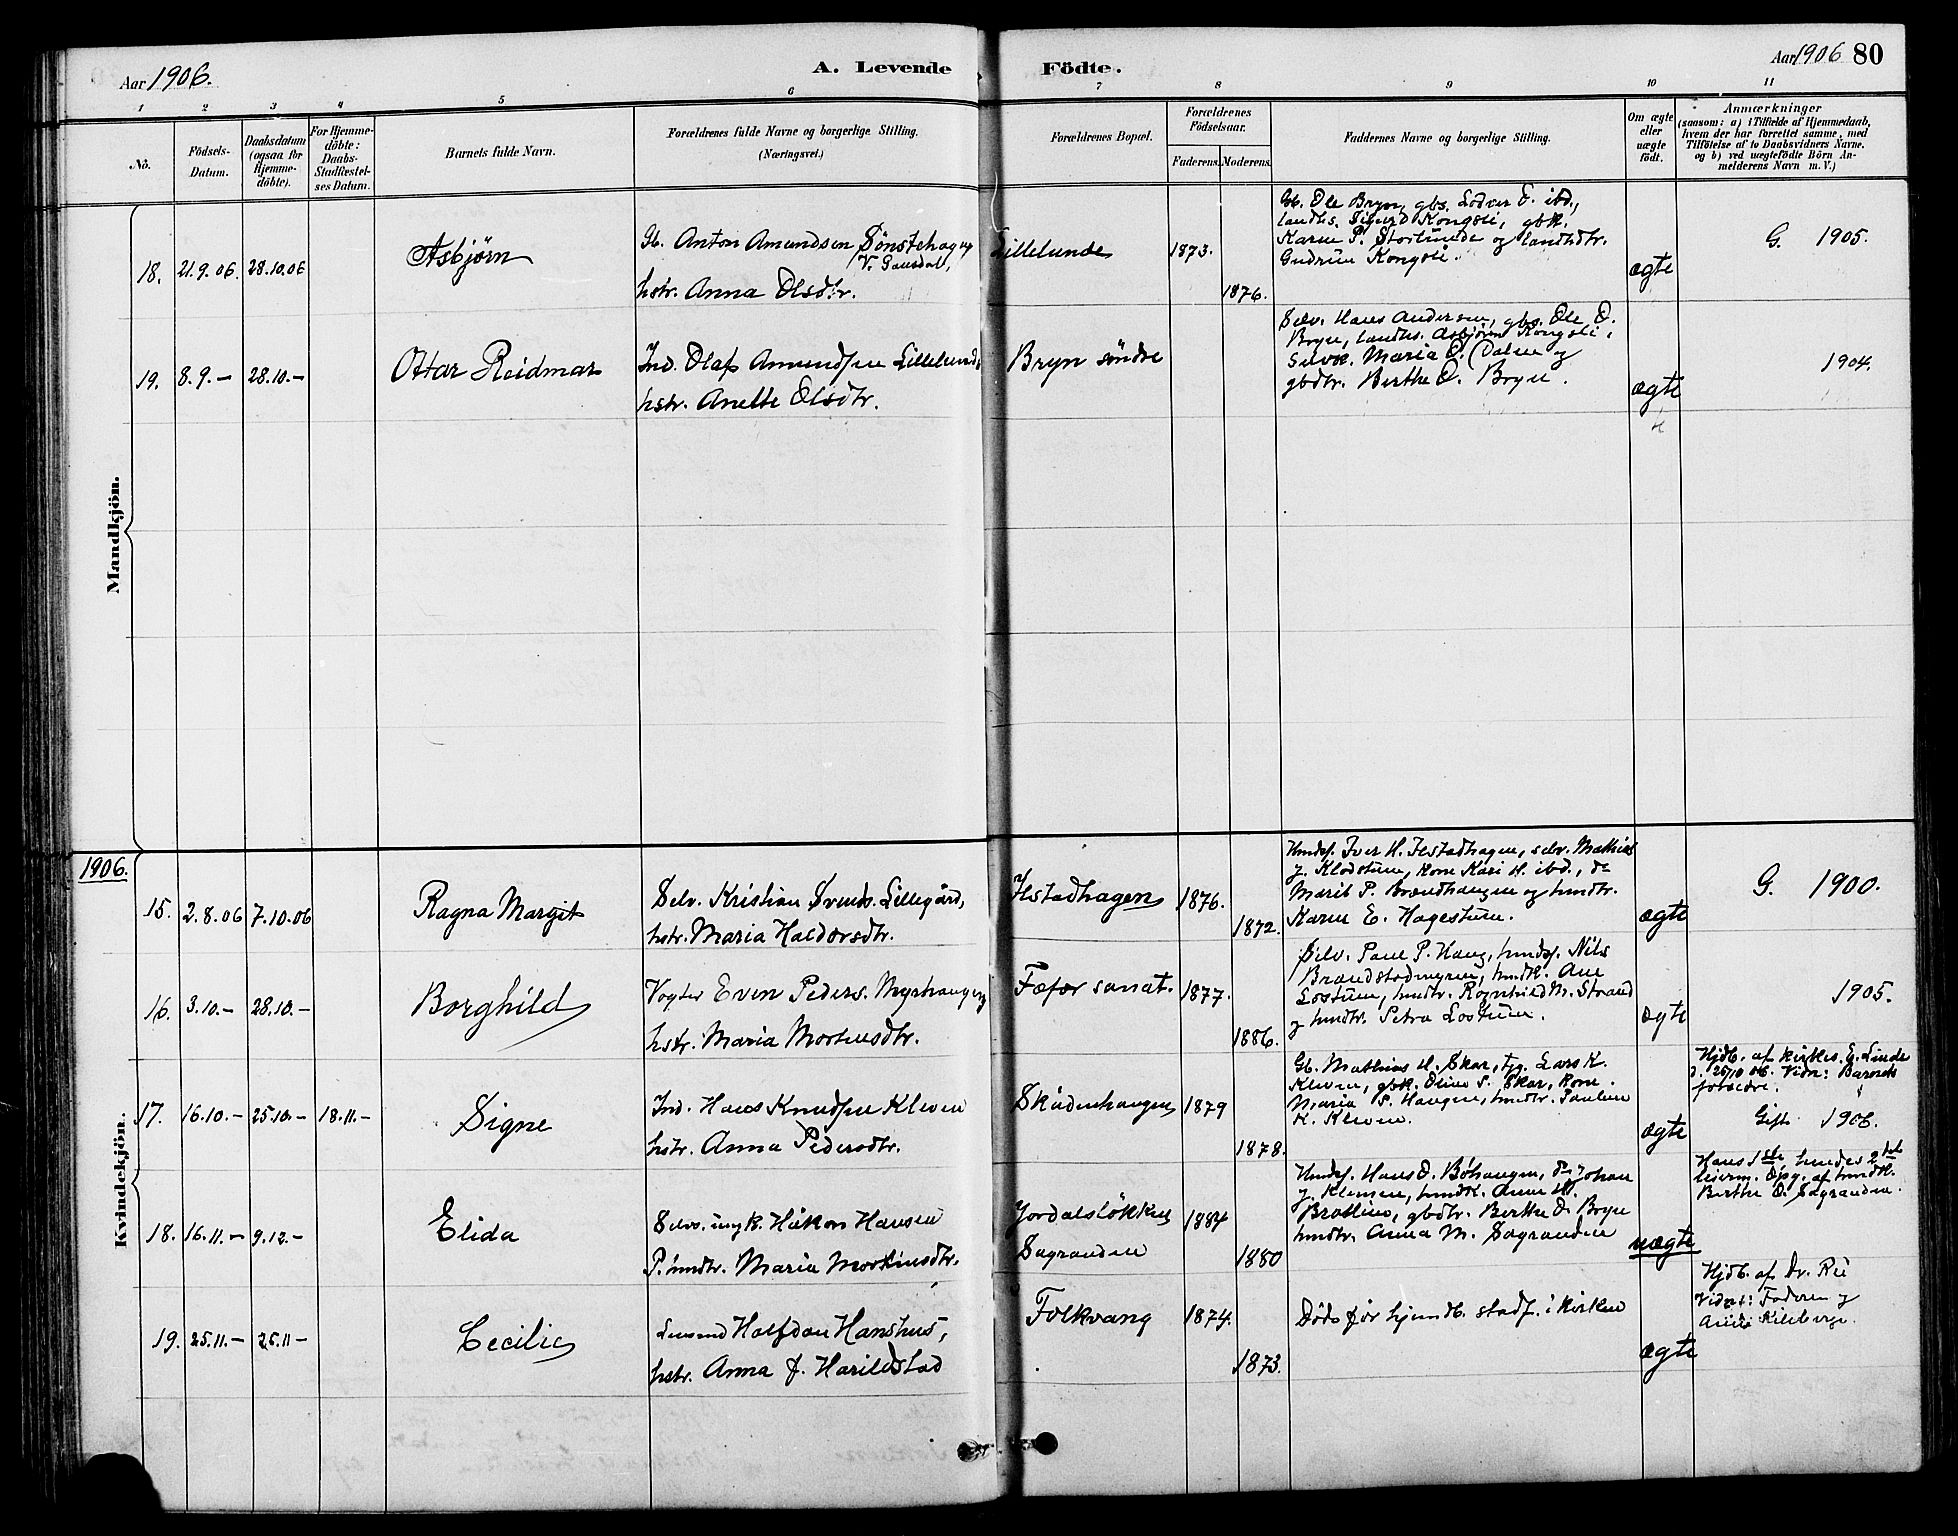 Aar 1906. A. Levende Födte. Aar 1906 80
1 2 3 4 5 6 7 8 9 10 11
No.
Födsels-Datum.
Daabsdatum (ogsaa for Hjemmedöbte).
For Hjemmedöbte: Daabs-Stadfæstelses Datum.
Barnets fulde Navn.
Forældrenes fulde Navne og borgerlige Stilling.
(Næringsvei.)
Forældrenes Bopæl.
Forældrenes Födselsaar.
Faderens. Moderens.
Faddernes Navne og borgerlige Stilling.
Om ægte eller uægte födt.
Anmærkninger
(saasom: a) i Tilfælde af Hjemmedaab,
hvem der har forrettet samme, med
Tilföielse af to Daabsvidners Navne,
og b) ved uægtefödte Börn An-
melderens Navn m. V.)
Mandkjön.
18. 21.9.06 28.10.06 Asbjørn
Gb. Anton Amundsen Sønstehagen
V. Gausdal,
hstr. Anna Olsdtr.
Lillelunde 1873. 1876.
Gb. Ole Bryn, gbs. Lodver O. ibd.,
landhs. Sigurd Kongsli, gbk.
Karen P. Storlunde og landhdtr.
Gudrun Kongsli.
ægte
G. 1905.
19. 8.9.– 28.10.– Ottar Reidmar
Ind. Olaf Amundsen Lillelunde,
hstr. Anette Olsdtr.
Bryn söndre
Selv. Hans Andersen, gbs. Ole O.
Bryn, landhs. Asbjörn Kongsli,
Selvk. Maria O. Dalen og
gbdtr. Berthe O. Bryn.
ægte
1904.
1906.
Kvindekjön.
15. 2.8.06 7.10.06 Ragna Margit
Selv. Kristian Svends. Lillegård,
hstr. Maria Haldorsdtr.
Ilstadhagen 1876. 1872.
Hmdsf. Iver H. Ilstadhagen, selv. Mathias
J. Klodstuen, kone Kari H. ibd., do
Marit P. Brændhaugen og hmdtr.
Karen E. Hagestuen.
ægte
G. 1900.
16. 3.10.– 28.10.– Borghild
Vogter Even Peders. Myrhaugen
hstr. Maria Mortensdtr.
Fæfor sanat. 1877. 1886.
Selv. Paul P. Haug, hmdsf. Nils
Brandstadmyren, hmdk. Ane
Lostuen, hmdtr. Ragnhild M. Strand
og hmdtr. Petra Lostuen.
ægte
1905.
17. 16.10.– 25.10.– 18.11.– Signe
Ind. Hans Knudsen Kleven
hstr. Anna Pedersdtr.
Skådenhaugen 1879 1878.
Gb. Mathias H. Skar, tjg. Lars K.
Kleven, gbk. Oline S. Skar, kone
Maria P. Haugen, hmdtr. Pauline
K. Kleven.
ægte
Hjdb. af kirkes. E. Linde
d. 25/10 06. Vidn: Barnets
forældre.
Gift 1906.
18. 16.11.– 9.12.– Elida
Selvs. ungk. Håkon Hansen
P. hmdtr. Maria Mortensdtr.
Jordalsløkken 1884
Sagranden 1880
Hmdsf. Hans O. Bøhaugen, do Johan
J. Klemen, hmdk. Anne H.
Bratlien, gbdtr. Berthe O. Bryn
hmdtr. Anna M. Sagranden
uægte
Hans 1ste hendes 2det
leierm. Opg. af hmdk.
Berthe O. Sagranden.
19. 25.11.– 25.11– Cecilie
Lensmd Halfdan Hanshus,
hstr. Anna J. Harildstad
Folkvang 1874. 1873.
Døde før hjemdb. stadf. i kirken
ægte
Hjdb. af Dr. Rii
Vidnet: Faderen og
Kileberge.